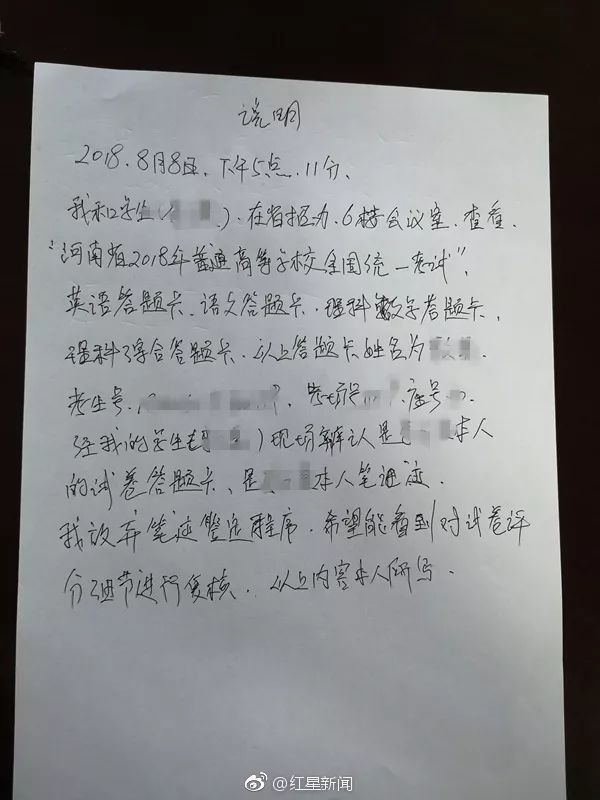 说明
2018.8月8日、下午5点.11分、
我和学生(    ).在省招办.6楼会议室.查看.
“河南省2018年普通高等学校全国统一考试”,
英语答题卡、语文答题卡.理科数学答题卡、
理科综合答题卡.以上答题卡姓名为    .
考生号.    .考场号    .座号    .
经我的学生(    )现场辨认是    本人
的试卷答题卡、是    本人笔迹.
我放弃笔迹鉴定程序.希望能看到对试卷评
分细节进行复核.以上内容本人所写.
@红星新闻